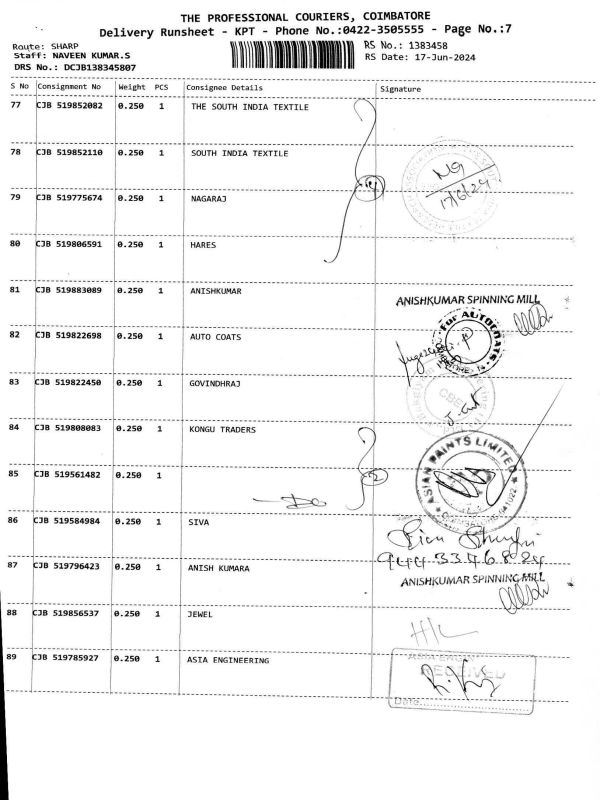 THE PROFESSIONAL COURIERS, COIMBATORE
Delivery Runsheet - KPT - Phone No.:0422-3505555 - Page No.:7
Route: SHARP
Staff: NAVEEN KUMAR.S
DRS No.: DCJB138345807
RS No.: 1383458
RS Date: 17-Jun-2024
S No Consignment No Weight PCS Consignee Details Signature
77 CJB 519852082 0.250 1 THE SOUTH INDIA TEXTILE
78 CJB 519852110 0.250 1 SOUTH INDIA TEXTILE
NG
17/6/24
79 CJB 519775674 0.250 1 NAGARAJ
80 CJB 519806591 0.250 1 HARES
81 CJB 519883089 0.250 1 ANISHKUMAR
ANISHKUMAR SPINNING MILL
82 CJB 519822698 0.250 1 AUTO COATS
For AUTOCOATS
83 CJB 519822450 0.250 1 GOVINDHRAJ
84 CJB 519808083 0.250 1 KONGU TRADERS
85 CJB 519561482 0.250 1
ASIAN PAINTS LIMITED
86 CJB 519584984 0.250 1 SIVA
87 CJB 519796423 0.250 1 ANISH KUMARA
ANISHKUMAR SPINNING MILL
88 CJB 519856537 0.250 1 JEWEL
89 CJB 519785927 0.250 1 ASIA ENGINEERING
RECEIVED
Date